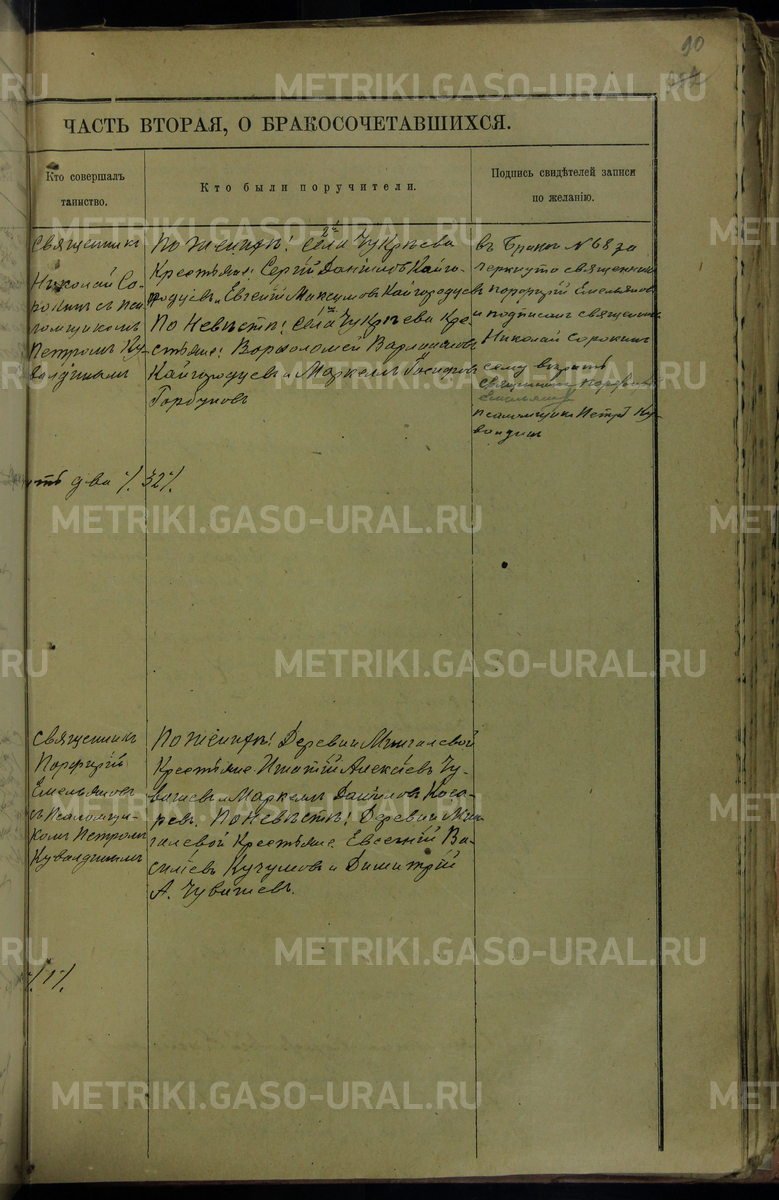 90
ЧАСТЬ ВТОРАЯ, О БРАКОСОЧЕТАВШИХСЯ.
Кто совершалъ
таинство.
Кто были поручители.
Подпись свидѣтелей записи
по желанію.
Священникъ
Николай Со-
рокинъ съ пса-
ломщикомъ
Петромъ Ку-
валдинымъ
По женихѣ: села Чукрѣева
Крестьяне: Сергій Даніиловъ Кайго-
родцевъ и Евгеній Максимовъ Кайгородцевъ
По невѣстѣ: села Чукрѣева кре-
стьяне: Варѳоломей
Кайгородцевъ и Маркелъ
Горбуновъ
въ бракѣ № 68 за
черкнуто священникъ
Порфирій Емельяновъ
и подписанъ священникъ
Николай Сорокинъ
сему вѣрить
Священникъ Порфирій
Емельяновъ
псаломщикъ Петръ Ку-
валдинъ
два %. 32%.
Священникъ
Порфирій
Емельяновъ
съ псаломщи-
комъ Петромъ
Кувалдинымъ
По женихѣ: Деревни Мингалевой
Крестьяне Игнатій Алексѣевъ Чу-
вашевъ и Маркелъ Даніиловъ Коса-
ревъ. По невѣстѣ: Деревни Мин-
галевой Крестьяне Евсевій Ва-
сильевъ Кучумовъ и Димитрій
А. Чувашевъ.
%. 1%.
METRIKI.GASO-URAL.RU